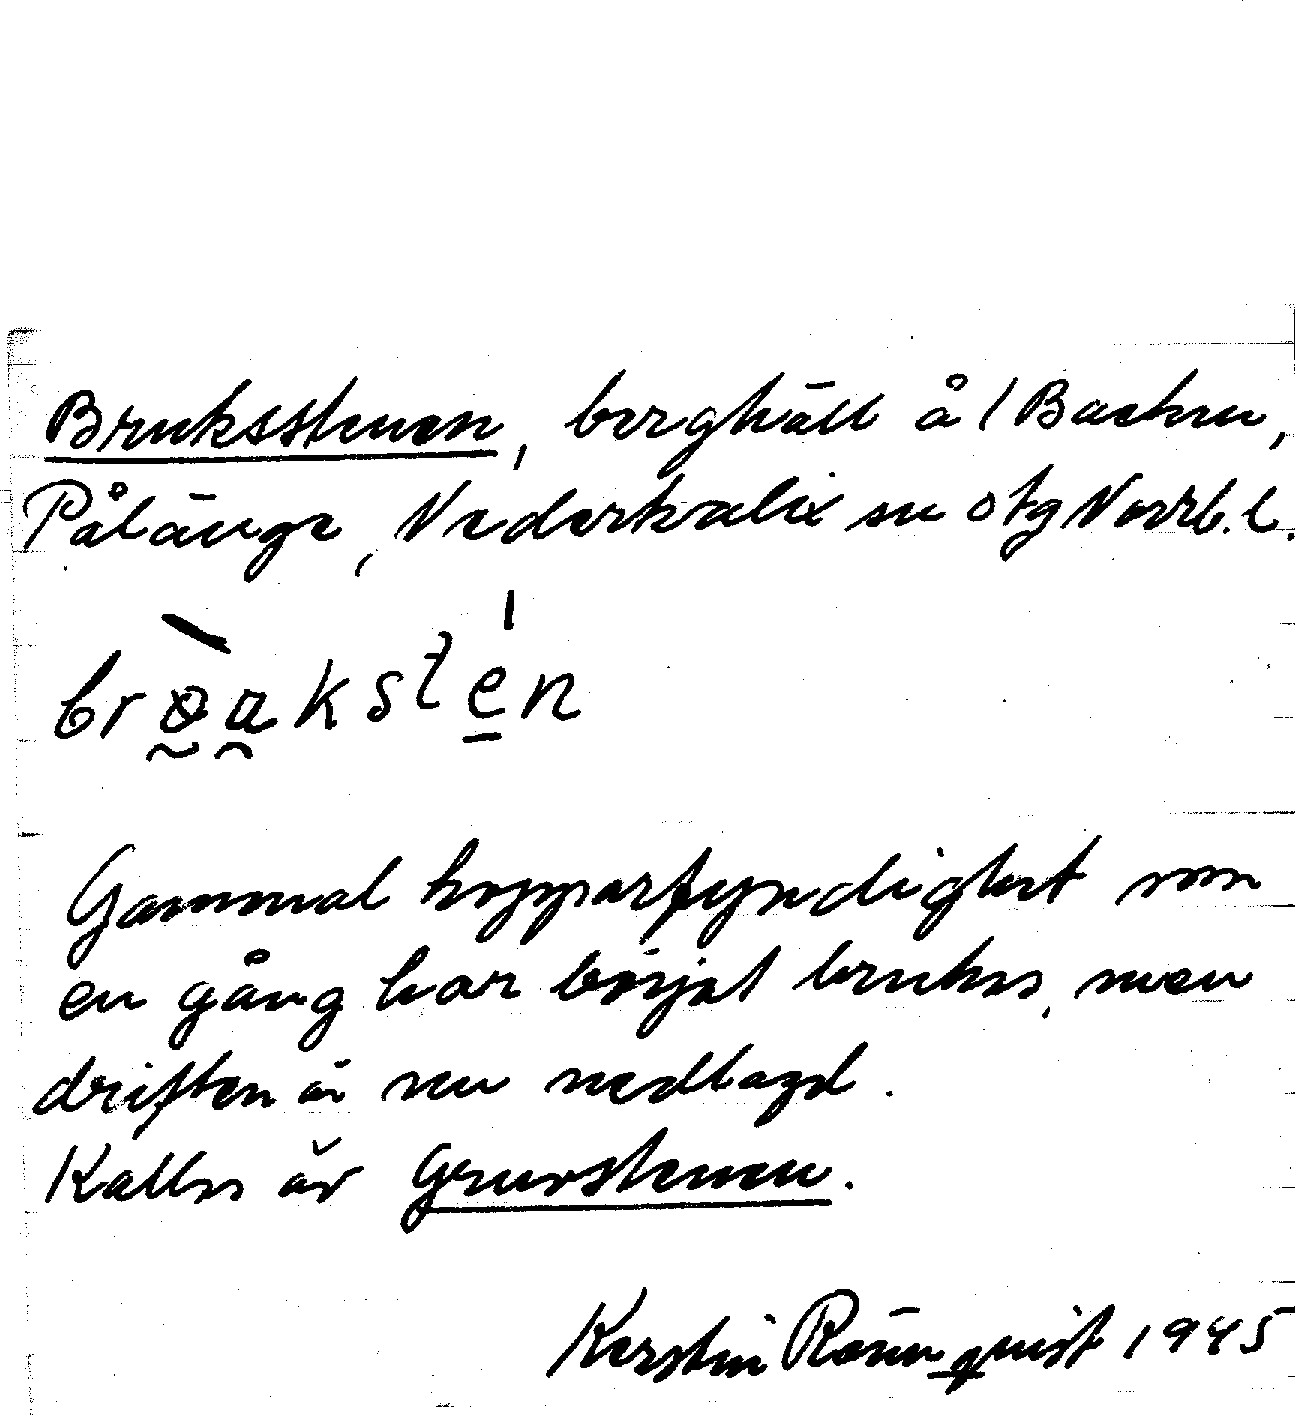 Bruksstenen, berghäll å / Backen,
Pålänge, Nederkalix sn otg Norrb. l.
Gammal kopparfyndighet som
en gång har börjat brukas, men
driften är nu nedlagd.
Kallas äv Gruvstenen.
Kerstin Rönnquist 1945